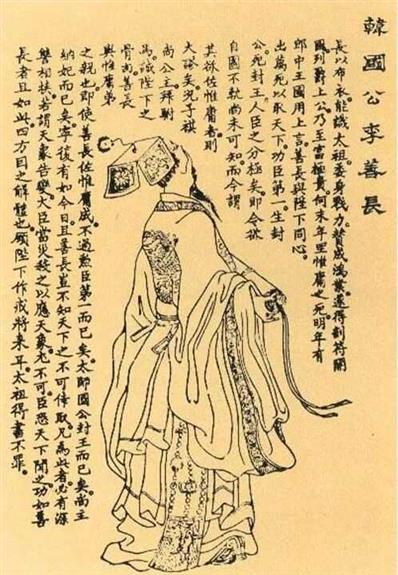 韓國公李善長
長以布衣能識太祖委身戮力贊成鴻業遂得剖符開
國列爵上公乃至富極貴何來年里惟庸之死明年有
郎中王國用上言善長與陛下同心
出萬死以取天下功臣第一生封
公死封王人臣之分極矣即令欲
自圖不軌尚未可知而今謂
其欲佐惟庸者則
大謬矣況子祺
尚公主拜尉
為誠陛下之
骨肉善長
與惟庸第
之親也即使善長佐惟庸成不過勳臣第一而已矣太師國公封王而已矣尚主
納妃而已矣寧復有如今日且善長豈不知天下之不可倖取凡為此者必有深
讐相挾若謂天象告變大臣當災殺之以應天象尤不可臣恐天下聞之功如善
長者且如此四方因之解體也願陛下作戒將來太祖得書不罪